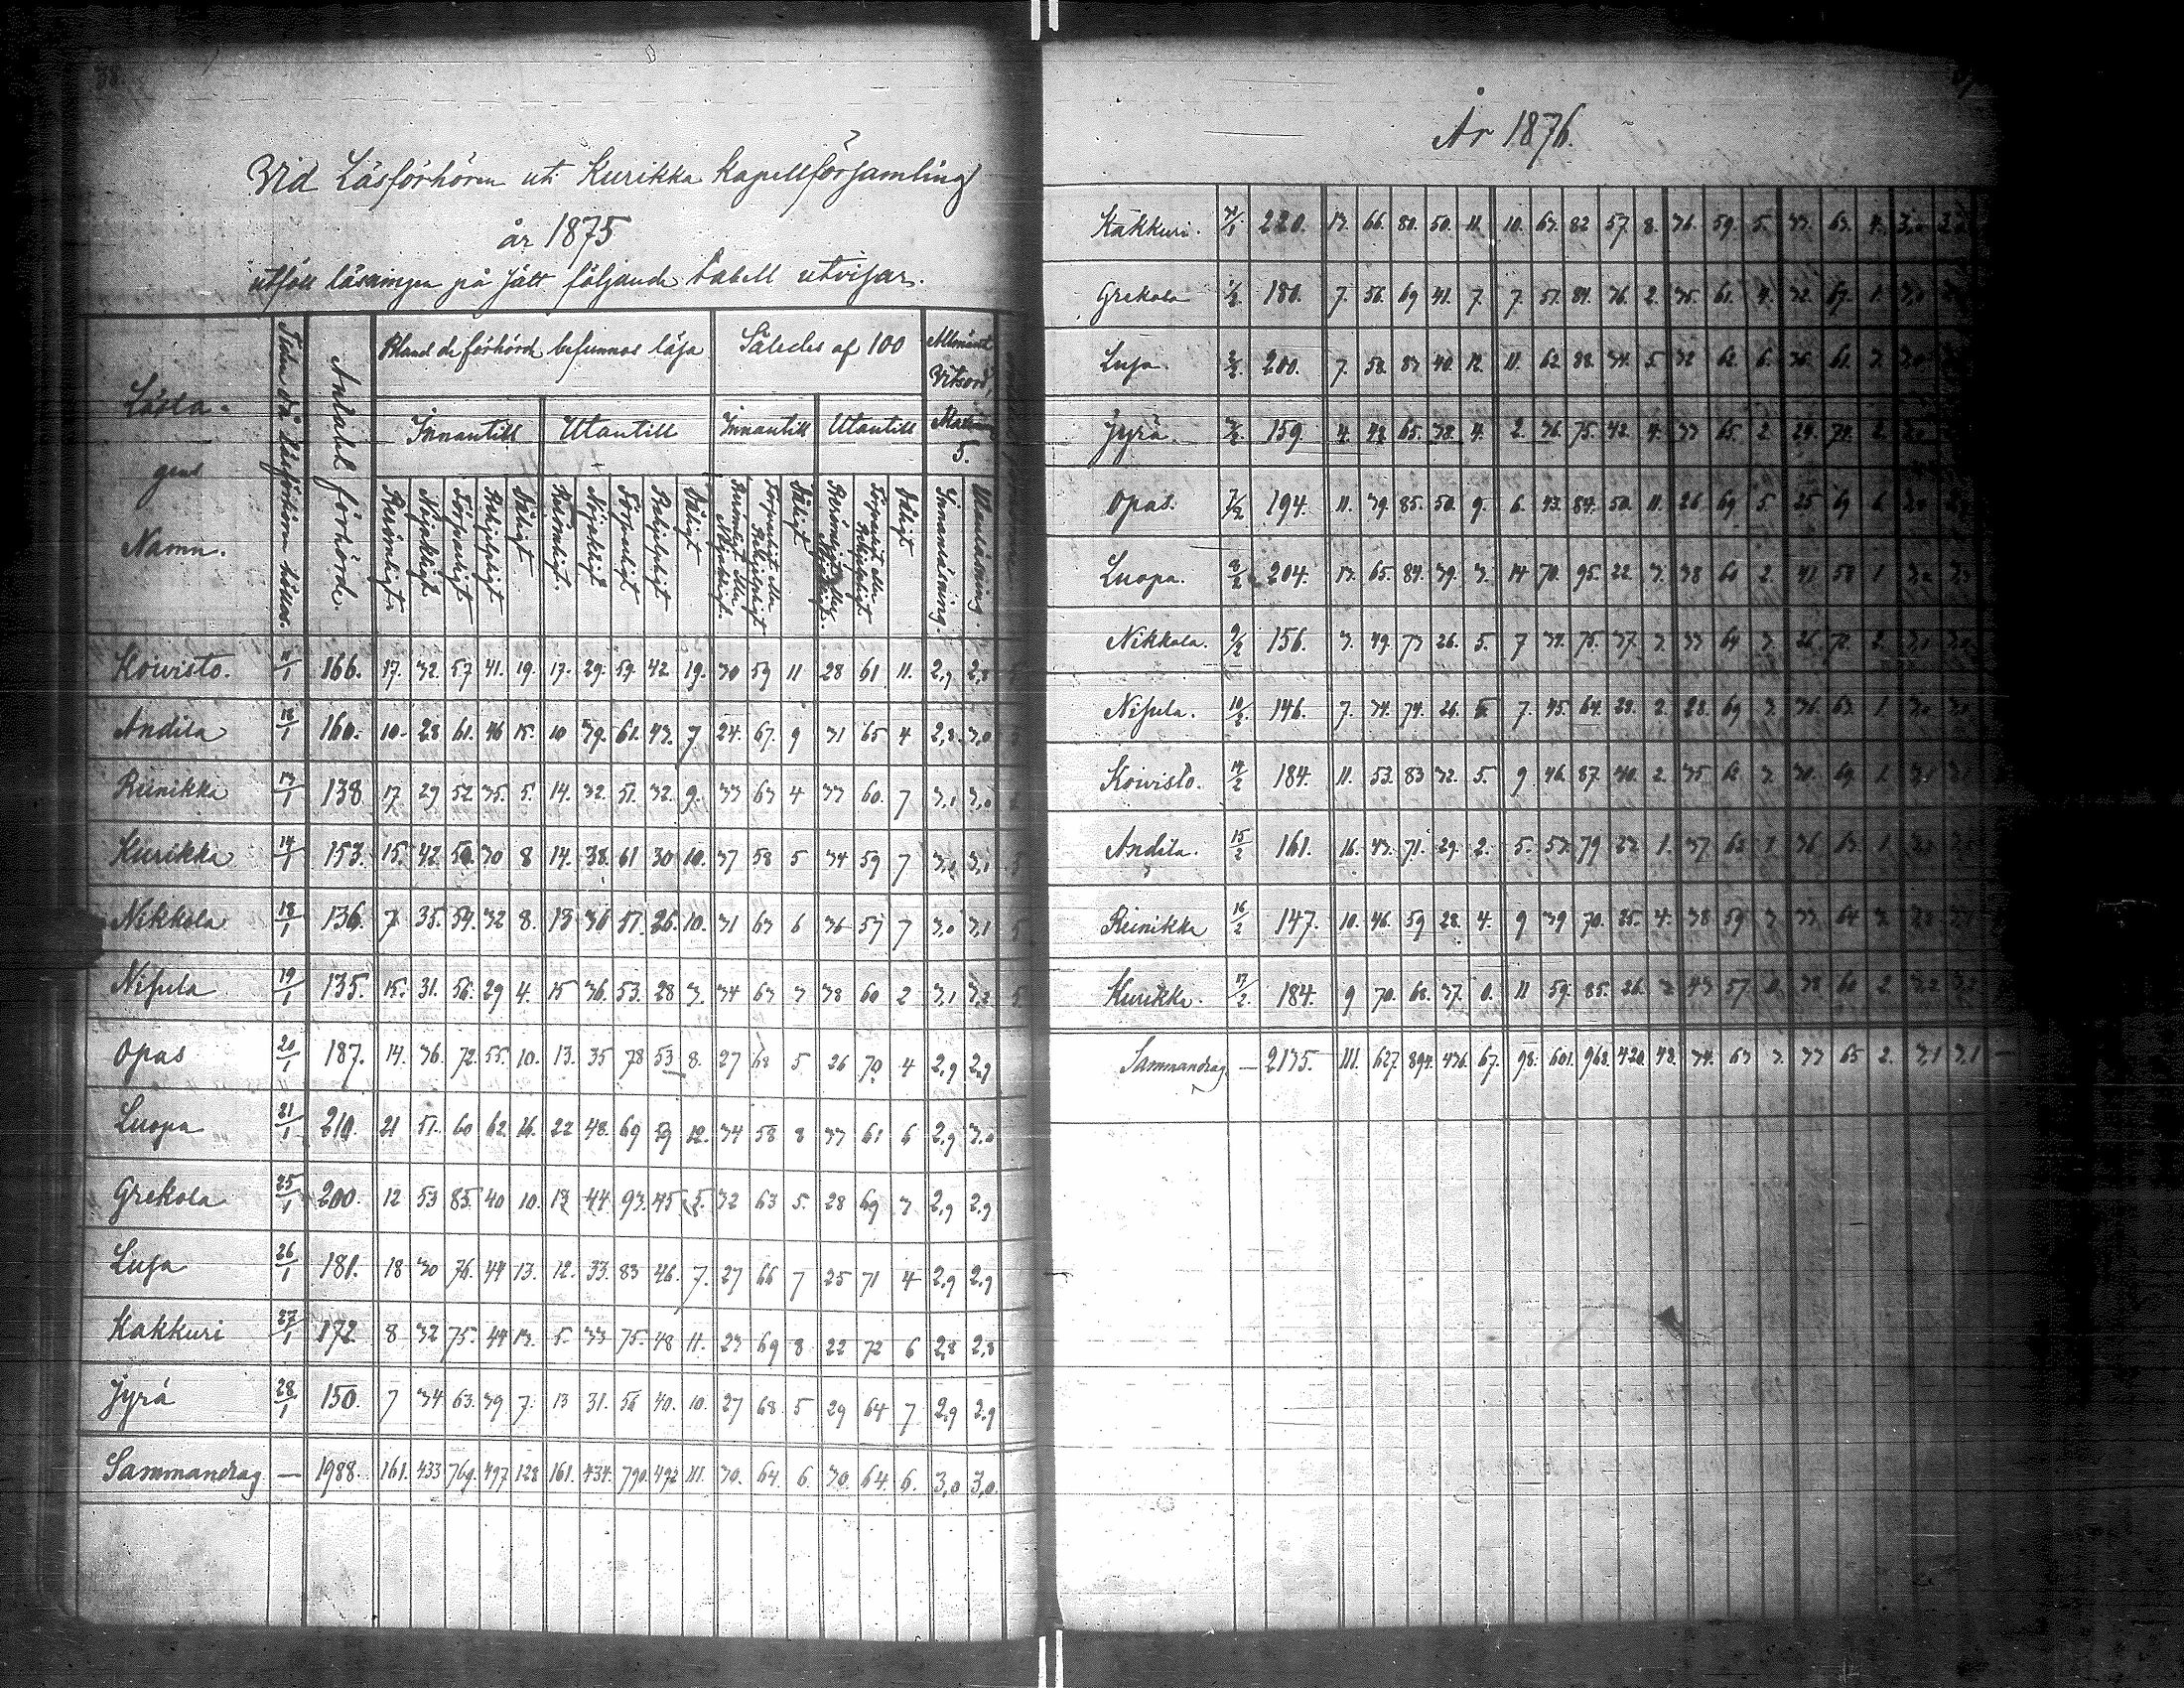 Vid Läsförhören uti Kurikka Kapellförsamling
år 1875
utföll läsningen på sätt följande tabell utvisar.
Läsla-
gens
Namn.
Tiden då läsförhören hölles.
Antalet förhörde.
Bland de förhörde befunnos läsa
Således af 100
Allmänt
Vitsord
5.
Innantill Utantill Innantill Utantill
Berömligt. Nöjaktigt Försvarligt Behjelpligt Dåligt Berömligt. Nöjaktigt Försvarligt Behjelpligt Dåligt Berömligt eller Nöjaktigt. Försvarligt eller Behjelpligt Dåligt Berömligt eller Nöjaktigt. Försvarligt eller Behjelpligt Dåligt Innanläsning. Utanläsning.
Koivisto. 11/1 166. 17. 32. 57 41. 19. 17. 29. 59 42. 19. 30 59 11 28 61 11. 2,9 2,8
Andila 12/1 160. 10. 28 61. 46 15. 10 39. 61. 43. 7 24. 67. 9 31 65 4 2,8. 3,0
Reinikka 13/1 138 17 29 52. 35. 5. 14. 32. 51. 32. 9. 33 63 4 33 60. 7 3,1 3,0
Kurikka 14/1 153. 15. 42. 58. 30 8 14. 38. 61 30 10. 37 58 5 34 59 7 3,1
Nikkola 18/1 136. 7. 35. 54. 32 8. 13 36 51. 26. 10. 31 63 6 36 57 7 3,0 3,1
Nisula 19/1 135. 15. 31. 56. 29 4. 15 36. 53. 28 3. 34 63 3 38 60 2 3,1 3,2
Opas 20/1 187. 14. 36. 72. 55. 10. 13. 35 78 53 8. 27 68 5 26 70 4 2,9 2,9
Luopa 21/1 210. 21 51. 60 62. 16. 22 48. 69 59 12. 34 58 8 33 61 6 2,9 3,0
Grekola 25/1 200. 12 53 85. 40 10. 13 44 93. 45 5. 32 63 5. 28 69 3 2,9 2,9
Lusa 26/1 181. 18 30 76. 44 13. 12. 33. 83 46. 7. 27 66 7 25 71 4 2,9 2,9
Kakkuri 27/1 172. 8 32 75. 44 13. 5. 33 75. 48 11. 23 69 8 22 72 6 2,8 2,8
Jyrä 28/1 150. 7 34 63. 39 7. 13 31. 56 40. 10. 27 68. 5 29 64 7 2,9 2,9
Sammandrag — 1988. 161. 433 769. 497 128 161. 434. 790. 492 111. 30. 64. 6. 30. 64. 6. 3,0 3,0.
År 1876.
Kakkuri. 220. 13. 66. 80. 50. 11. 10. 63. 82 57. 8. 36. 59. 5. 33. 63. 4.
Grekola 180. 7. 56. 69 41. 7. 7. 51. 84. 36. 2. 35. 61. 4. 32. 67. 1. 3,0
Lusa 200. 7. 58. 83. 40. 12. 11. 62. 88. 34. 5. 32 62. 6. 36. 61. 3.
Jyrä. 159. 4. 48. 65. 38. 4. 2. 36. 75. 42. 4. 33 65. 2 24. 74. 2
Opas. 7/2 194. 11. 39. 85. 50. 9. 6. 43. 84. 50. 11. 26 69 5. 25 69 6
Luopa. 8/2 204. 13. 65. 84. 39. 3. 14 70. 95. 22 3. 38 60 2. 41 58 1
Nikkola. 9/2 156. 3. 49. 73 26. 5. 7 34. 75. 37. 3. 33 64 3. 26. 72. 2.
Nisula. 10/2 146. 7. 34. 74. 26. 7. 45. 64. 28. 2. 28. 69 3. 36. 63. 1.
Koivisto. 14/2 184. 11. 53. 83 32. 5. 9 46. 87. 40. 2. 35. 62. 3. 30. 69. 1. 3,1
Andila. 15/2 161. 16. 43. 71. 29. 2. 5. 53. 79 23. 1. 37 62 1. 36 63. 1.
Reinikka 16/2 147. 10. 46. 59 28. 4. 9 39 70. 25. 4. 38 59 3. 33 64 3.
Kurikka. 17/2 184. 9 70. 68. 37. 0. 11 59. 85. 26. 3 43 57 0. 38 60 2.
Sammandrag — 2135. 111. 627. 894. 436. 67. 98. 601. 968. 420. 48. 34. 63 3. 33 65 2. 3,1 3,1 —